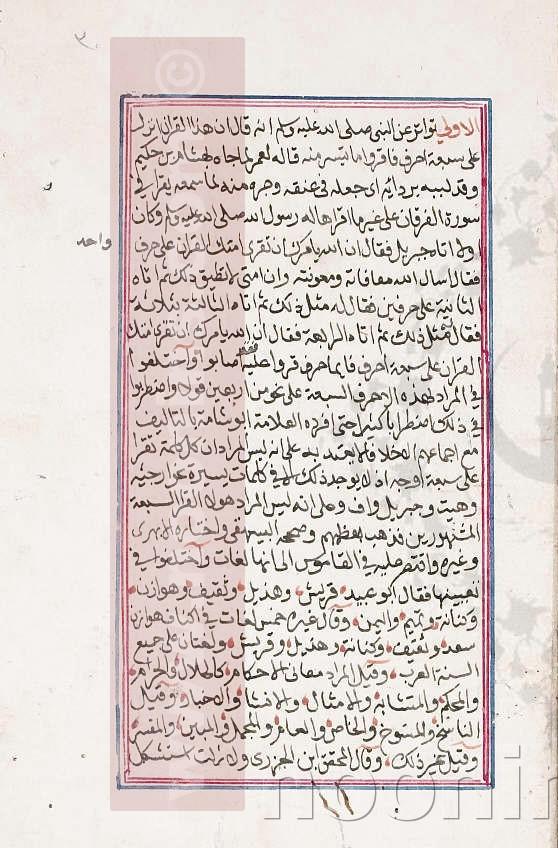 الاولي تواتر عن النبي صلى الله عليه وسلم انه قال ان هذا القران انزل
على سبعة احرف فاقروا ما تيسر منه قاله لعمر لما جاه بهشام بن حكيم
وقد لببه بردائه اي جعله في عنقه وجره منه لما سمعه يقرا في
سورة الفرقان على غير ما اقرهاله رسول الله صلى الله عليه وسلم وكان
اولا اتاه جبريل فقال ان الله يامرك ان تقرى امتك القران على حرف
واحد
فقال اسال الله معافاته ومعونته وان امتى لا تطيق ذلك ثم اتاه
الثانية على حرفين فقال له مثل ذلك ثم اتاه الثالثة بثلاثة
فقال مثل ذلك ثم اتاه الرابعة فقال ان الله يامرك ان تقرى امتك
القران على سبعة احرف فايما حرف قروا عليه فقد اصابوا واختلفوا
في المراد بهذه الاحرف السبعة على نحو من اربعين قولا واضطربوا
في ذلك اضطرابا كثيرا حتى افرده العلامة ابو شامة بالتاليف
مع اجماعهم الا خلافا لا يعتد به على انه ليس المراد ان كل كلمة تقرا
على سبعة اوجه اذ لا يوجد ذلك الا في كلمات يسيرة نحو ارجئه
وهيت وجبريل واف وعلى انه ليس المراد هولا القرا السبعة
المشهورين فذهب معظمهم وصححه البيهقى واختاره الابهرى
وغيره واقتصر عليه في القاموس الى انها لغات واختلفوا في
تعيينها فقال ابو عبيد قريش وهذيل وثقيف وهوازن
وكنانة وتميم واليمن وقال غيره خمس لغات في اكناف هوازن
سعد وثقيف وكنانة وهذيل وقريش ولغتان على جميع
السنة العرب وقيل المراد معانى الاحكام كالحلال والحرام
والمحكم والمتشابه والامثال والانشا والاخبار وقيل
الناسخ والمنسوخ والخاص والعام والمجمل والمبين والمفسر
وقيل غير ذلك وقال المحقق ابن الجزرى ولا زلت استشكل